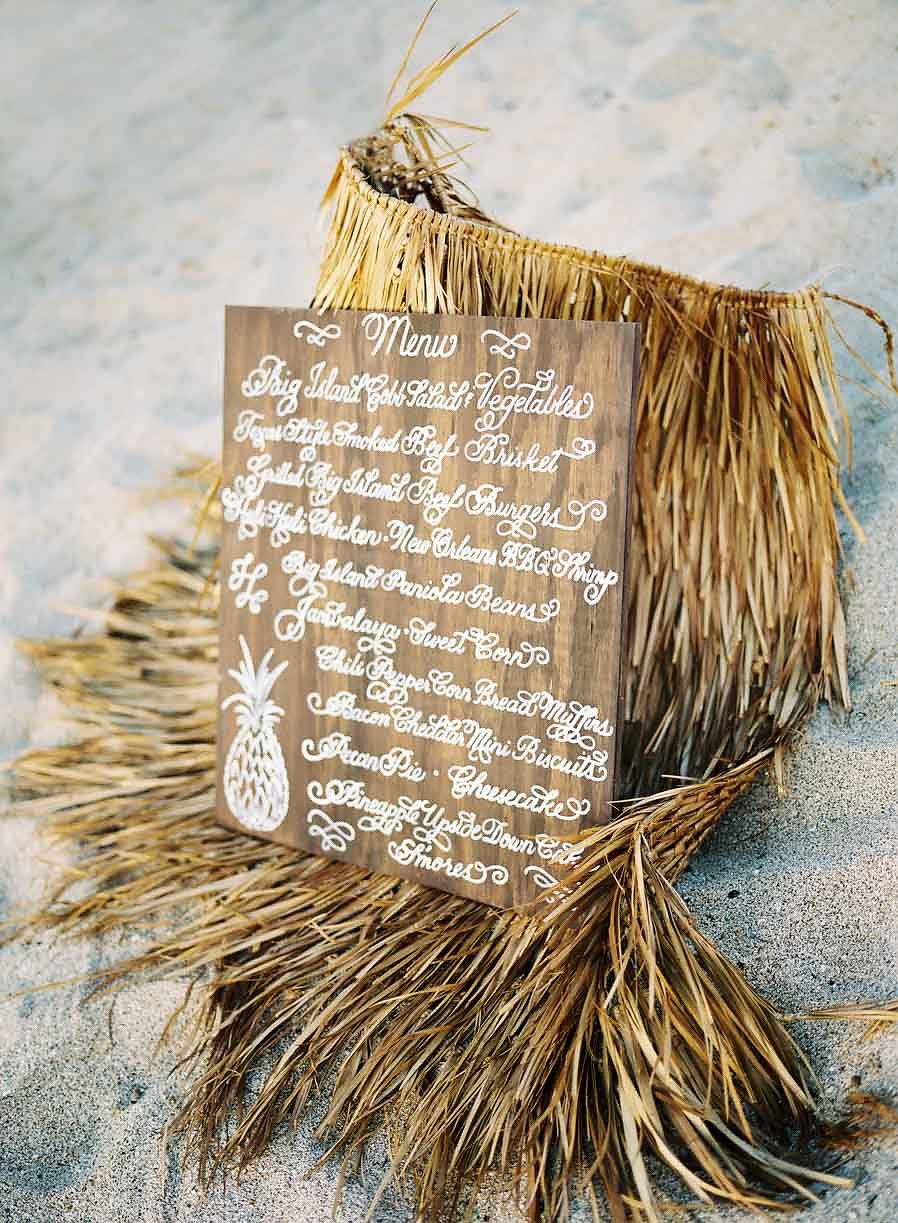 Menu
Big Island Cobb Salad & Vegetables
Texas Style Smoked Beef Brisket
Grilled Big Island Beef Burgers
Huli Huli Chicken · New Orleans BBQ Shrimp
Big Island Paniola Beans
Jambalaya · Sweet Corn
Chili Pepper Corn Bread Muffins
Bacon Cheddar Mini Biscuits
Pecan Pie · Cheesecake
Pineapple Upside Down Cake
S'mores